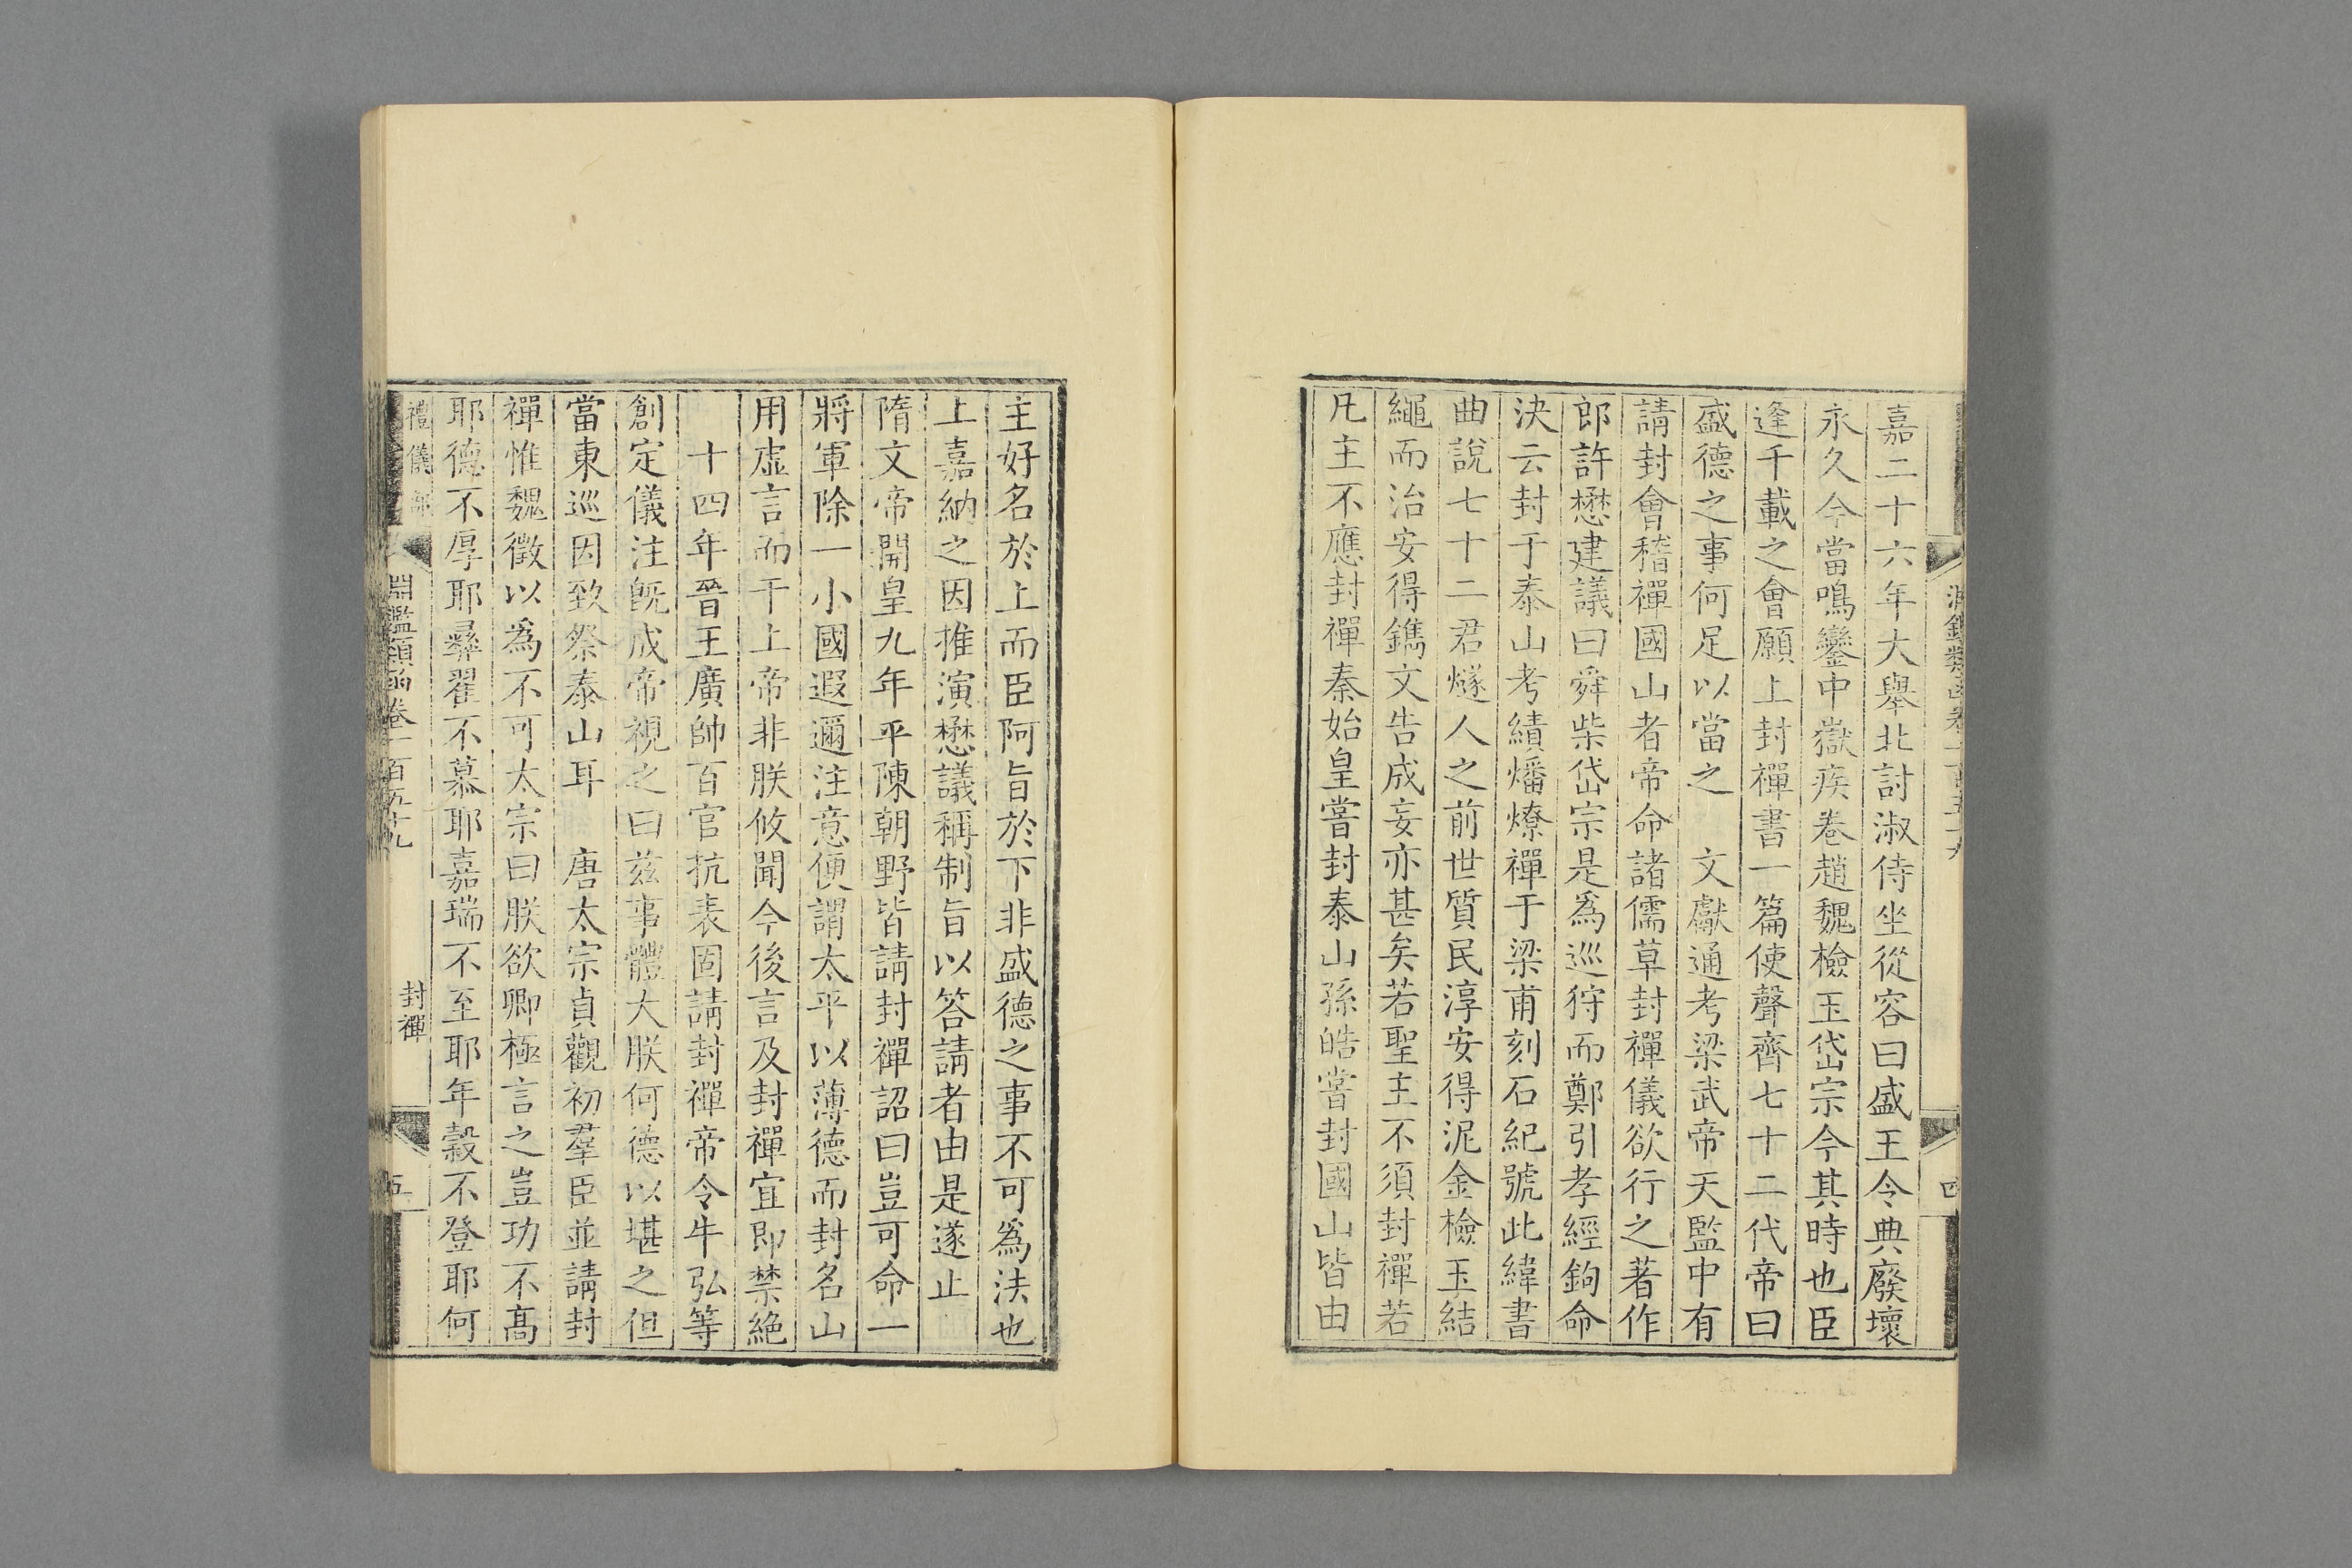 嘉二十六年大舉北討淑侍坐從容曰盛王令典廢壞
永久今當鳴鑾中嶽疾卷趙魏檢玉岱宗今其時也臣
逢千載之會願上封禪書一篇使聲齊七十二代帝曰
盛德之事何足以當之　文獻通考梁武帝天監中有
請封會稽禪國山者帝命諸儒草封禪儀欲行之著作
郎許懋建議曰舜柴岱宗是爲巡狩而鄭引孝經鉤命
決云封于泰山考績燔燎禪于梁甫刻石紀號此緯書
曲說七十二君燧人之前世質民淳安得泥金檢玉結
繩而治安得鐫文告成妄亦甚矣若聖主不須封禪若
凡主不應封禪秦始皇嘗封泰山孫皓嘗封國山皆由
主好名於上而臣阿旨於下非盛德之事不可爲法也
上嘉納之因推演懋議稱制旨以答請者由是遂止
隋文帝開皇九年平陳朝野皆請封禪詔曰豈可命一
將軍除一小國遐邇注意便謂太平以薄德而封名山
用虛言而干上帝非朕攸聞今後言及封禪宜即禁絶
十四年晉王廣帥百官抗表固請封禪帝令牛弘等
創定儀注旣成帝視之曰兹事體大朕何德以堪之但
當東巡因致祭泰山耳　唐太宗貞觀初羣臣並請封
禪惟魏徵以爲不可太宗曰朕欲卿極言之豈功不髙
耶德不厚耶彝翟不慕耶嘉瑞不至耶年穀不登耶何
禮儀部
淵鑑類函卷一百五十九
封禪
五